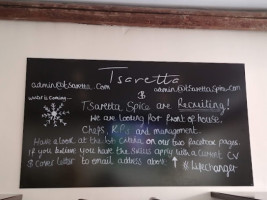 Tsaretta
admin@tsaretta.com & admin@tsarettaSpice.com
Winter is Coming...
Tsaretta Spice are Recruiting!
We are looking for front of house,
Chefs, K.P's and management.
Have a look at the job criteria on our two facebook pages.
If you believe you have the skills apply with a current CV
& cover letter to email address above ↑ #Lifechanger